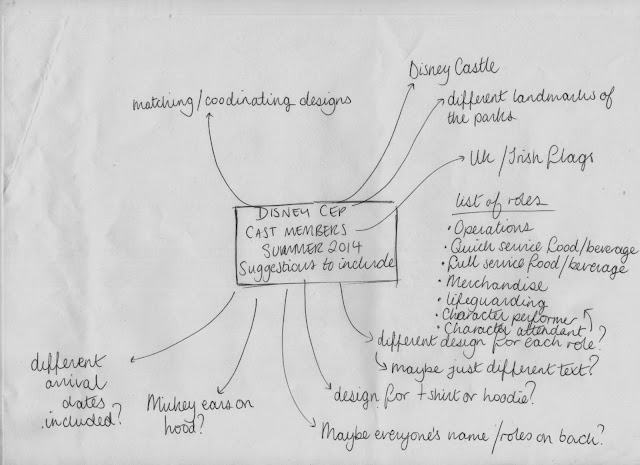 Disney Castle
matching/coodinating designs
different landmarks of
the parks
UK/Irish flags
DISNEY CEP
CAST MEMBERS
SUMMER 2014
Suggestions to include
list of roles
• Operations
• Quick service food/beverage
• Full service food/beverage
• Merchandise
• Lifeguarding
• Character performer
• Character attendant
different design for each role?
maybe just different text?
different
arrival
dates
included?
Mickey ears on
hood?
design for t shirt or hoodie?
Maybe everyone's name/roles on back?